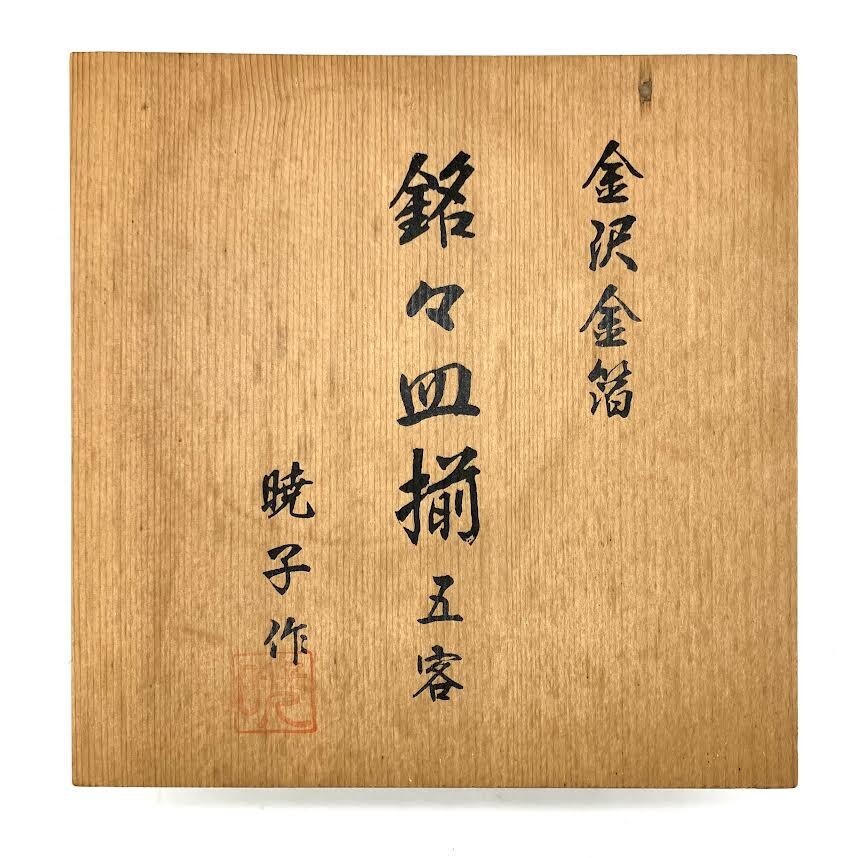 金沢金箔
銘々皿揃五客
暁子作
暁